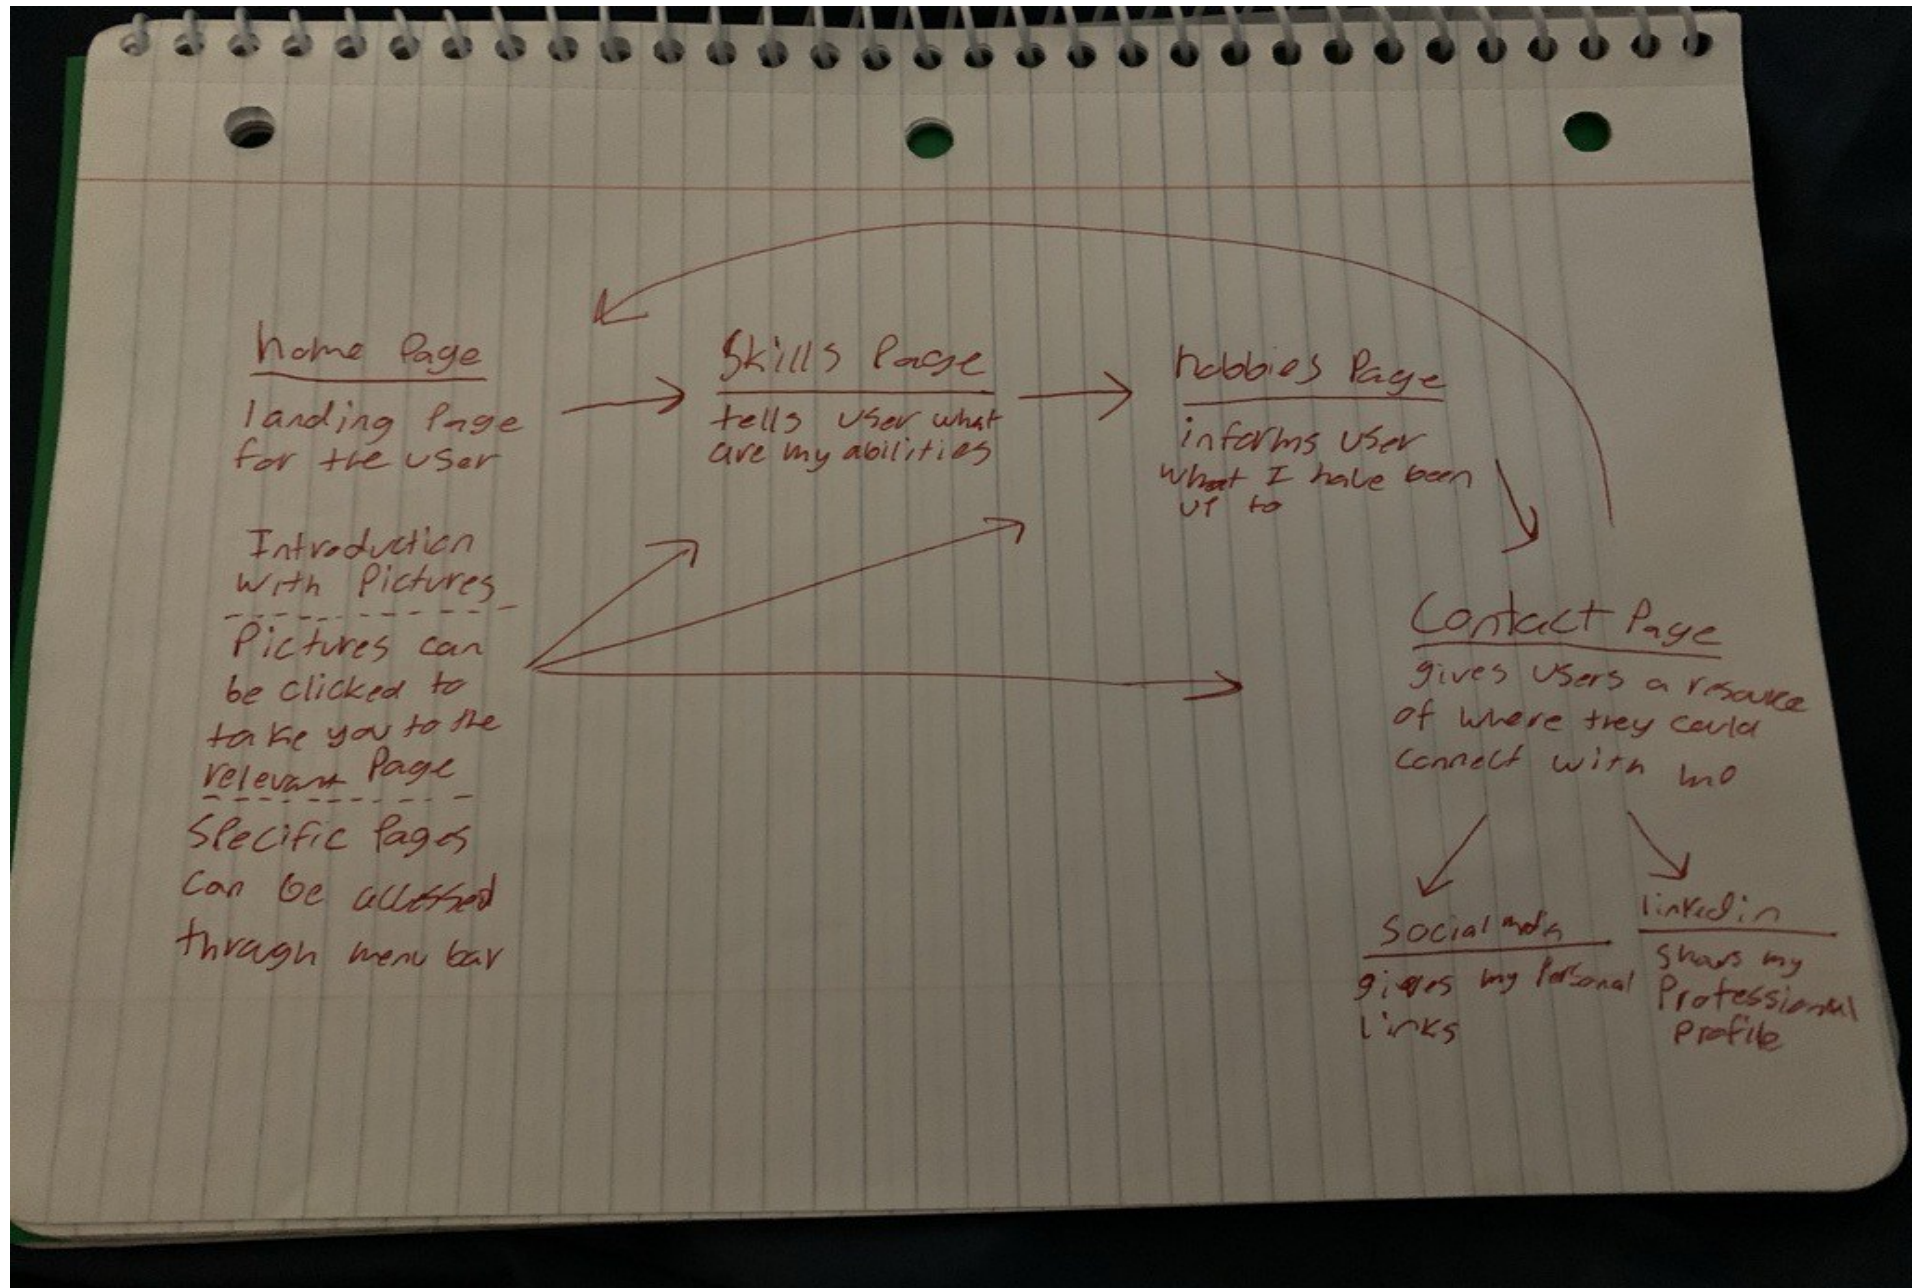 home Page
landing Page
for the user
Introduction
with Pictures
Pictures can
be clicked to
take you to the
relevant Page
Specific Pages
can be accessed
through menu bar
Skills Page
tells user what
are my abilities
hobbies Page
informs user
what I have been
up to
Contact Page
gives users a resource
of where they could
connect with me
Social media
gives my Personal
links
linkedin
shows my
Professional
profile